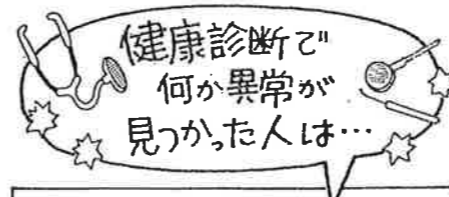 健康診断で
何か異常が
見つかった人は…